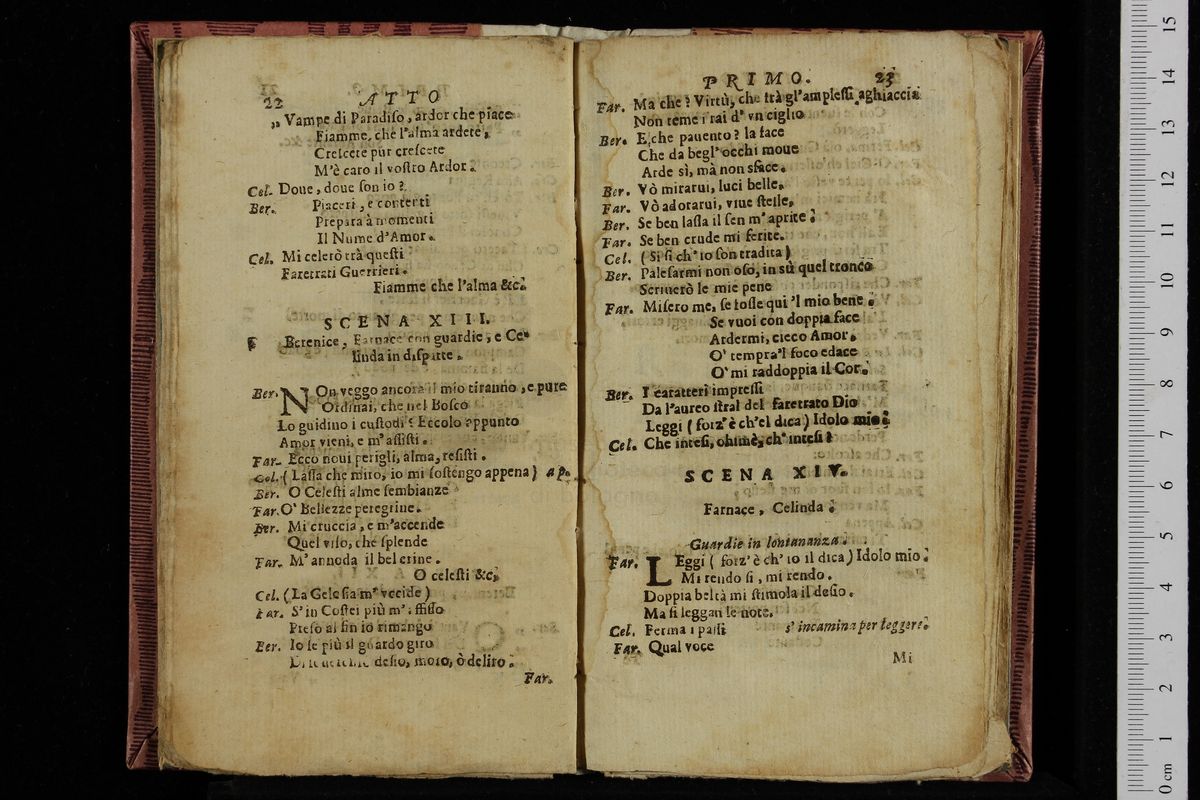 22 ATTO
„ Vampe di Paradiſo, ardor che piace
Fiamme, che l'alma ardete,
Creſcete pur creſcete
M'è caro il voſtro Ardor.
Cel. Doue, doue ſon io?
Ber. Piaceri, e contenti
Prepara à momenti
Il Nume d'Amor.
Cel. Mi celerò trà queſti
Faretrati Guerrieri.
Fiamme che l'alma &c.
SCENA XIII.
Berenice, Farnace con guardie, e Ce-
linda in diſparte.
Ber. NOn veggo ancora il mio tiranno, e pure
Ordinai, che nel Boſco
Lo guidino i cuſtodi? Eccolo appunto
Amor vieni, e m'aſſiſti.
Far. Ecco noui perigli, alma, reſiſti.
Cel. (Laſſa che miro, io mi ſoſtengo appena) a p.
Ber. O Celeſti alme ſembianze
Far. O' Bellezze peregrine.
Ber. Mi cruccia, e m'accende
Quel viſo, che ſplende
Far. M'annoda il bel crine.
O celeſti &c.
Cel. (La Geloſia m'vccide)
Far. S'in Coſtei più m'affiſſo
Preſo al fin io rimango
Ber. Io ſe più il guardo giro
deſio, moro, ò deliro.
Far.
PRIMO. 23
Far. Ma che? Virtù, che trà gl'ampleſſi aghiaccia
Non teme i rai d'vn ciglio
Ber. E che pauento? la face
Che da begl'occhi moue
Arde sì, mà non sface.
Ber. Vò mirarui, luci belle,
Far. Vò adorarui, viue ſtelle,
Ber. Se ben laſſa il ſen m'aprite.
Far. Se ben crude mi ferite.
Cel. (Si ſi ch'io ſon tradita)
Ber. Paleſarmi non oſo, in sù quel tronco
Scriuerò le mie pene
Far. Miſero me, ſe foſſe qui 'l mio bene.
Se vuoi con doppia face
Ardermi, cieco Amor,
O' tempra'l foco edace
O' mi raddoppia il Cor.
Ber. I caratteri impreſſi
Da l'aureo ſtral del faretrato Dio
Leggi (forz'è ch'el dica) Idolo mio.
Cel. Che inteſi, ohimè, ch'inteſi?
SCENA XIV.
Farnace, Celinda.
Guardie in lontananza.
Far. LEggi (forz'è ch'io il dica) Idolo mio.
Mi rendo ſi, mi rendo.
Doppia beltà mi ſtimola il deſio.
Ma ſi leggan le note.
Cel. Ferma i paſſi s'incamina per leggere.
Far. Qual voce
Mi
0 cm 1 2 3 4 5 6 7 8 9 10 11 12 13 14 15